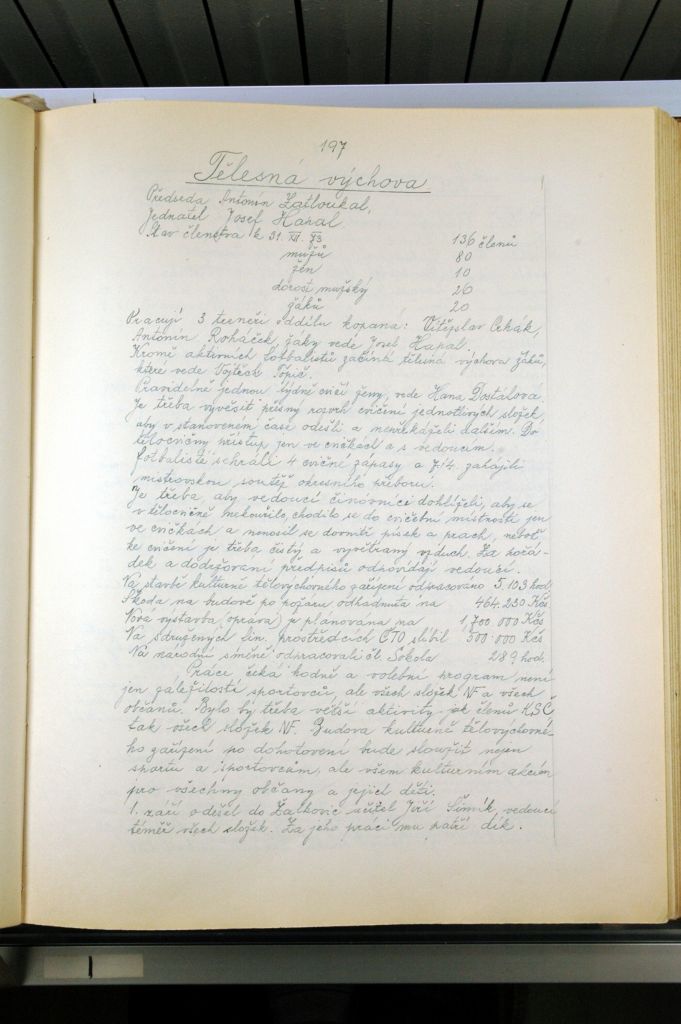 197
Tělesná výchova
Předseda Antonín Zatloukal,
Jednatel Josef Hapal.
Stav členstva k 31. XII. 73 136 členů
mužů 80
žen 10
dorost mužský 26
žáků 20
Pracují 3 trenéři oddílu kopaná: Vítězslav
Antonín Roháček, žáky vede Josef Hapal.
Kromě aktivních fotbalistů začíná tělesná výchova žáků,
které vede Vojtěch
Pravidelně jednou týdně cvičí ženy, vede Hana Dostálová.
Je třeba vyvěsit přesný rozvrh cvičení jednotlivých složek,
aby v stanoveném čase odešli a nepřekáželi dalším. Do
tělocvičny přístup jen ve cvičkách a s vedoucím.
Fotbalisté sehráli 4 cvičné zápasy a 7./4. zahájili
mistrovskou soutěž okresního přeboru.
Je třeba, aby vedoucí činovníci dohlíželi, aby se
v tělocvičně nekouřilo, chodilo se do cvičební místnosti jen
ve cvičkách a nenosil se dovnitř písek a prach, neboť
ke cvičení je třeba čistý a vyvětraný vzduch. Za pořá-
dek a dodržování předpisů odpovídají vedoucí.
Na stavbě kulturně tělovýchovného zařízení odpracováno 5.103 hod.
Škoda na budově po požáru odhadnuta na 464.230 Kčs
Nová výstavba (oprava) je plánována na 1,700 000 Kčs
Na sdružených fin. prostředcích ČTO slíbil 500.000 Kčs
Na národní směně odpracovali čl. Sokola 289 hod.
Práce čeká hodně a volební program není
jen záležitostí sportovců, ale všech složek NF a všech
občanů. Bylo by třeba větší aktivity jak členů KSČ
tak všech složek NF. Budova kulturně tělovýchovné-
ho zařízení po dohotovení bude sloužit nejen
sportu a sportovcům, ale všem kulturním akcím
pro všechny občany a jejich děti.
1. září odešel do Žalkovic učitel Jiří Šimík, vedoucí
téměř všech složek. Za jeho práci mu patří dík.